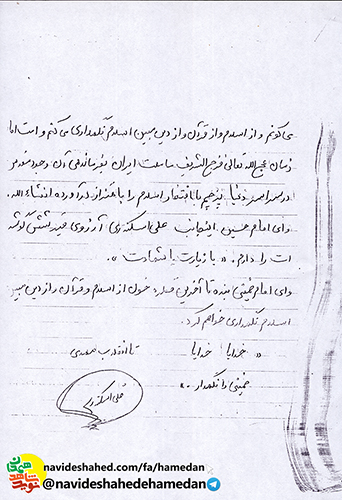 می‌گویم و از اسلام و از قرآن و از دین مبین اسلام نگهداری می‌کنم و است اما
زمان عجل الله تعالی فرج الشریف ما ملت ایران به فرماندهی آن وجود
در سراسر دنیا پرچم با افتخار اسلام را به اهتزاز درآورده انشاء الله.
وای امام حسین اینجانب علی اسکندری آرزوی قبر شش گوشه
ات را دارم. «یا زیارت یا شهادت».
وای امام خمینی بنده تا آخرین قطره خون از اسلام و قرآن و از دین مبین
اسلام نگهداری خواهم کرد.
«خدایا خدایا تا انقلاب مهدی
خمینی را نگهدار.»
علی اسکندری
نوید شاهد
همدان
navideshahed.com/fa/hamedan
@navideshahedehamedan